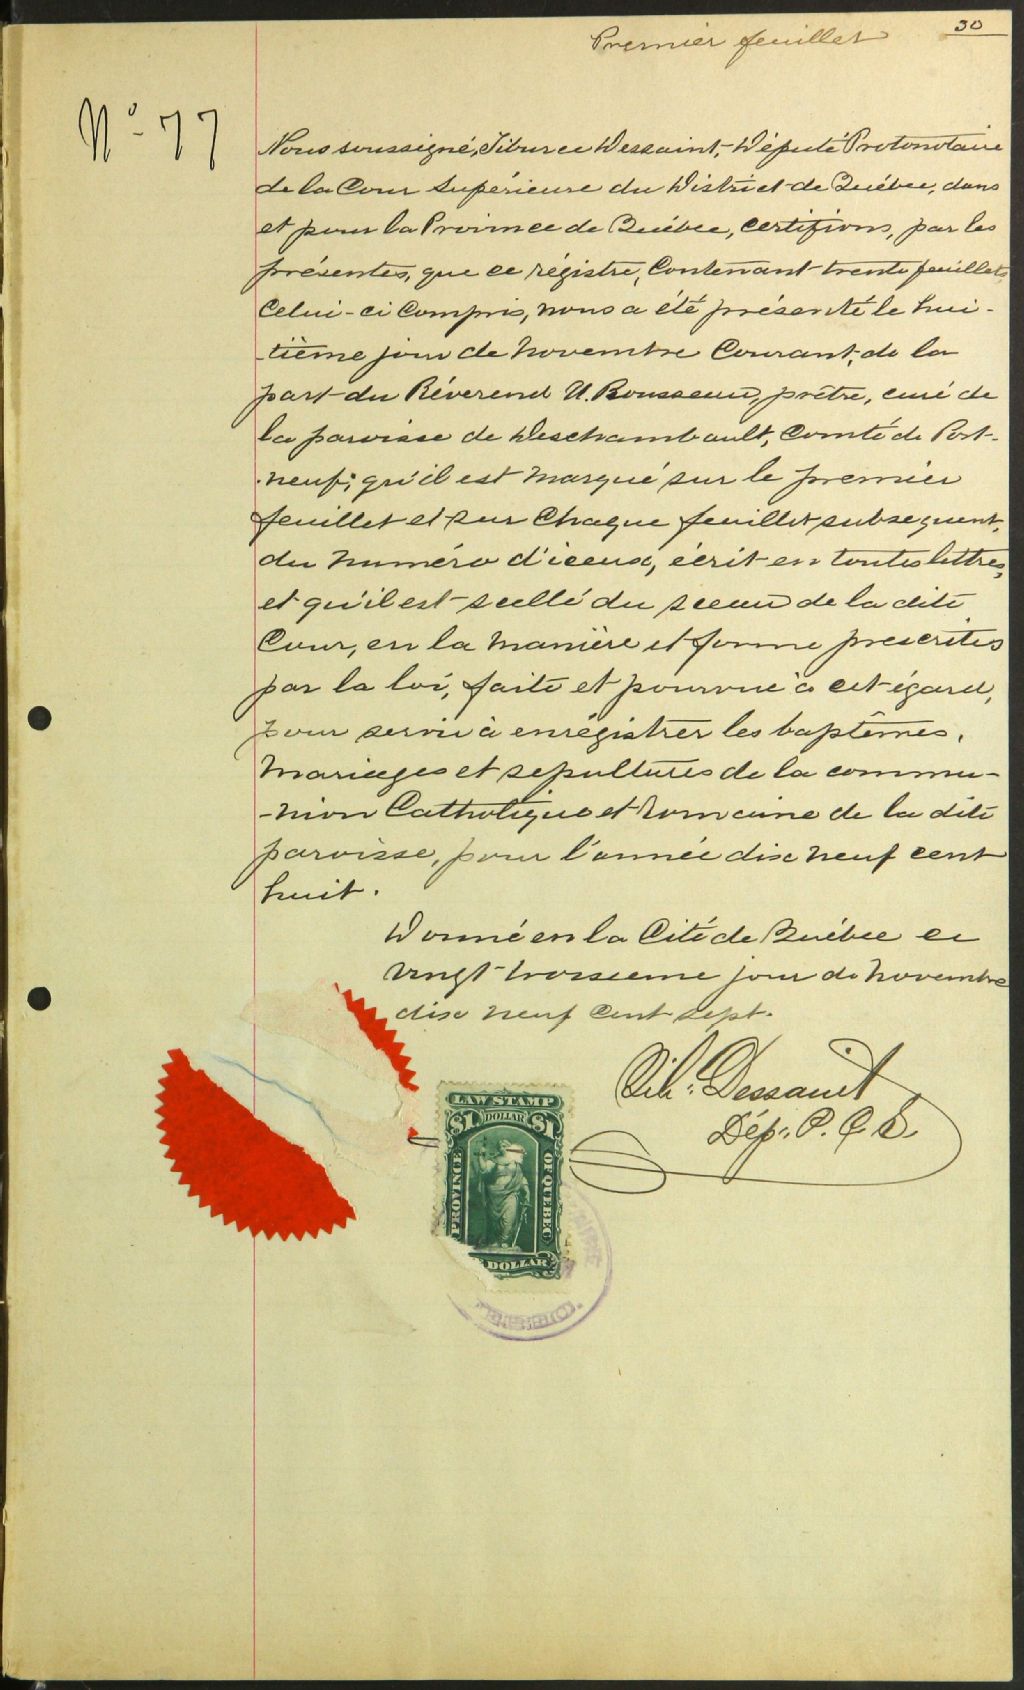 30
Premier feuillet
No 77
Nous soussigné, Tiburce Dessaint, Député Protonotaire
de la Cour Supérieure du District de Québec, dans
et pour la Province de Québec, certifions, par les
présentes, que ce régistre, contenant trente feuillets
celui-ci compris, nous a été présenté le hui-
tième jour de novembre courant, de la
part du Révérend U. Rousseau, prêtre, curé de
la paroisse de Deschambault, Comté de Port-
neuf; qu'il est marqué sur le premier
feuillet et sur chaque feuillet subsequent,
du numéro d'iceux, écrit en toutes lettres,
et qu'il est scellé du sceau de la dite
Cour, en la manière et forme prescrites
par la loi, faite et pourvue à cet égard,
pour servir à enrégistrer les baptêmes,
mariages et sépultures de la commu-
-nion Catholique et romaine de la dite
paroisse, pour l'année dix neuf cent
huit.
Donné en la Cité de Québec ce
vingt-troisieme jour de novembre
dix neuf cent sept.
Tib. Dessaint
Dép. P. C. S.
LAW STAMP
$1 DOLLAR $1
PROVINCE
OF QUEBEC
DOLLAR